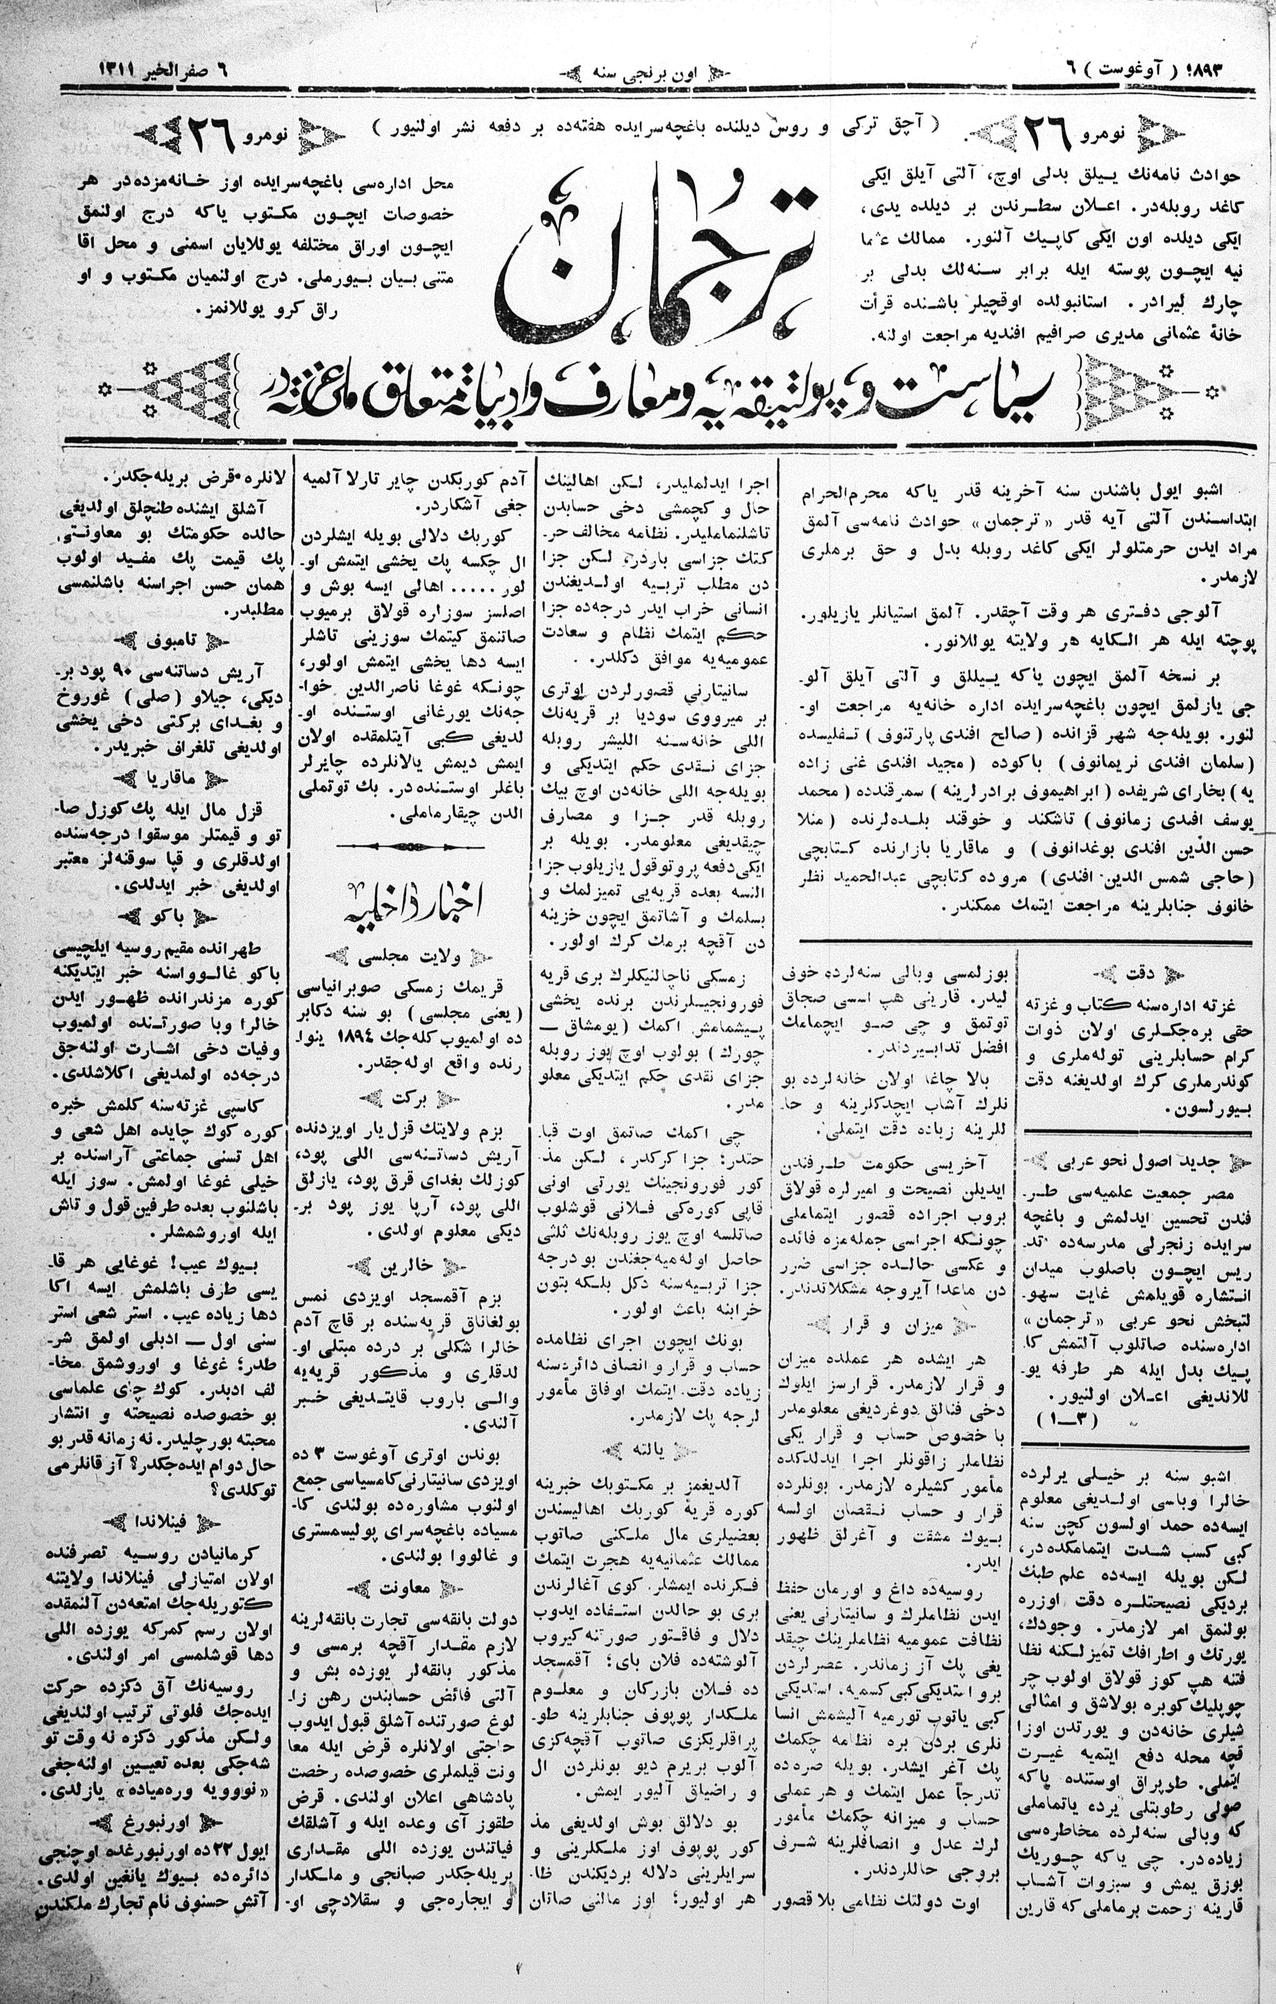 ١٨٩٣ ( آوغوست ) ٦
اون برنجی سنه
٦ صفر الخیر ١٣١١
نومرو ٢٦
( آچق ترکی و روس دیلنده باغچه‌سرایده هفته‌ده بر دفعه نشر اولنیور )
نومرو ٢٦
حوادث نامه‌نك ییلق بدلی اوچ، آلتی آیلق ایکی
کاغد روبله‌در. اعلان سطرندن بر دیلده یدی،
ایکی دیلده اون ایکی کاپیك آلنور. ممالك عثما
نیه ایچون پوسته ایله برابر سنه‌لك بدلی بر
چارك لیرادر. استانبولده اوقچیلر باشنده قرأت
خانهٔ عثمانی مدیری صرافیم افندیه مراجعت اولنه.
ترجمان
محل اداره‌سی باغچه‌سرایده اوز خانه‌مزده‌در هر
خصوصات ایچون مکتوب یاکه درج اولنمق
ایچون اوراق مختلفه یوللایان اسمنی و محل اقا
متنی بیان بیورملی. درج اولنمیان مکتوب و او
راق کرو یوللانمز.
سیاست و پولتیقه‌یه و معارف و ادبیاته متعلق ملی غزته‌در
اشبو ایول باشندن سنه آخرینه قدر یاکه محرم‌الحرام
ابتداسندن آلتی آیه قدر «ترجمان» حوادث نامه‌سی آلمق
مراد ایدن حرمتلولر ایکی کاغد روبله بدل و حق برملری
لازمدر.
آلوجی دفتری هر وقت آچقدر. آلمق استیانلر یازیلور.
پوچته ایله هر الکایه هر ولایته یوللانور.
بر نسخه آلمق ایچون یاکه ییللق و آلتی آیلق آلو-
جی یازلمق ایچون باغچه‌سرایده اداره خانه‌یه مراجعت او-
لنور. بویله‌جه شهر قزانده (صالح افندی پارتنوف) تفلیسده
(سلمان افندی نریمانوف) باکوده (مجید افندی غنی زاده
یه) بخارای شریفده (ابراهیموف برادرلرینه) سمرقندده (محمد
یوسف افندی زمانوف) تاشکند و خوقند بلده‌لرنده (منلا
حسن الدین افندی بوغدانوف) و ماقاریا بازارنده کتابچی
(حاجی شمس الدین افندی) مروده کتابچی عبدالحمید نظر
خانوف جنابلرینه مراجعت ایتمك ممکندر.
دقت
غزته اداره‌سنه کتاب و غزته
حقی بره‌جکلری اولان ذوات
کرام حسابلرینی توله‌ملری و
کوندرملری کرك اولدیغنه دقت
بیورلسون.
جدید اصول نحو عربی
مصر جمعیت علمیه‌سی طر-
فندن تحسین ایدلمش و باغچه
سرایده زنجرلی مدرسه‌ده تد-
ریس ایچون باصلوب میدان
انتشاره قویلمش غایت سهو-
لتبخش نحو عربی «ترجمان»
اداره‌سنده صاتلوب آلتمش کا
پیك بدل ایله هر طرفه یو-
للاندیغی اعلان اولنیور.
(٣—١)
اشبو سنه بر خیلی یرلرده
خالرا وباسی اولدیغی معلوم
ایسه‌ده حمد اولسون کچن سنه
کبی کسب شدت ایتمامکده‌در،
لکن بویله ایسه‌ده علم طبك
بردیکی نصیحتلره دقت اوزره
بولنمق امر لازمدر. وجودك،
یورتك و اطرافك تمیزلکنه نظا
فتنه هپ کوز قولاق اولوب چر
چوپلیك کوبره بولاشق و امثالی
شیلری خانه‌دن و یورتدن اوزا
قچه محله دفع ایتمیه غیرت
ایتملی. طوپراق اوستنده یاکه
صولی رطوبتلی یرده یاتماملی
که وبالی سنه‌لرده مخاطره‌سی
زیاده‌در. چی یاکه چوریك
بوزق یمش و سبزوات آشاب
قارینه زحمت برماملی که قارین
بوزلمسی وبالی سنه‌لرده خوف
لیدر. قارینی هپ اسسی صجاق
توتمق و چی صو ایچمامك
افضل تدابیردندر.
بالا چاغا اولان خانه‌لرده بو
نلرك آشاب ایچدکلرینه و حا-
للرینه زیاده دقت ایتملی.
آخریسی حکومت طرفندن
ایدیلن نصیحت و امیرلره قولاق
بروب اجراده قصور ایتماملی
چونکه اجراسی جمله‌مزه فائده
و عکسی حالده جزاسی ضرر
دن ماعدا آیروجه مشکلاتدندر.
میزان و قرار
هر ایشده هر عملده میزان
و قرار لازمدر. قرارسز ایلوك
دخی فنالق دوغردیغی معلومدر
با خصوص حساب و قرار یکی
نظاملر زاقونلر اجرا ایدلدکده
مأمور کشیلره لازمدر. بونلرده
قرار و حساب نقصان اولسه
بیوك مشقت و آغرلق ظهور
ایدر.
روسیه‌ده داغ و اورمان حفظ
ایدن نظاملرك و سانیتارنی یعنی
نظافت عمومیه نظاملرینك چیقد
یغی پك آز زماندر. عصرلردن
برو استدیکی کبی کسمیه. استدیکی
کبی یاتوب تورمیه آلیشمش انسا
نلری بردن بره نظامه چکمك
پك آغر ایشدر. بویله صره‌ده
تدرجاً عمل ایتمك و هر عملی
حساب و میزانه چکمك مأمور
لرك عدل و انصافلرینه شرف
بروجی حاللردندر.
اوت دولتك نظامی بلا قصور
اجرا ایدلملیدر، لکن اهالینك
حال و کچمشی دخی حسابدن
تاشلنماملیدر. نظامه مخالف حر-
کتك جزاسی باردر، لکن جزا
دن مطلب تربیه اولدیغندن
انسانی خراب ایدر درجه‌ده جزا
حکم ایتمك نظام و سعادت
عمومیه‌یه موافق دکلدر.
سانیتارنی قصورلردن اوتری
بر میرووی سودیا بر قریه‌نك
اللی خانه‌سنه اللیشر روبله
جزای نقدی حکم ایتدیکی و
بویله‌جه اللی خانه‌دن اوچ بیك
روبله قدر جزا و مصارف
چیقدیغی معلومدر. بویله بر
ایکی دفعه پروتوقول یازیلوب جزا
النسه بعده قریه‌یی تمیزلمك و
بسلمك و آشاتمق ایچون خزینه
دن آقچه برمك کرك اولور.
زمسکی ناچالنیکلرك بری قریه
فورونجیلرندن برنده یخشی
پیشمامش اکمك (یومشاق —
چورك) بولوب اوچ یوز روبله
جزای نقدی حکم ایتدیکی معلو
مدر.
چی اکمك صاتمق اوت قبا-
حتدر: جزا کرکدر، لکن مذ-
کور فورونجینك یورتی اونی
قاپی کوره‌کی فلانی قوشلوب
صاتلسه اوچ یوز روبله‌نك ثلثی
حاصل اوله‌میه‌جغندن بو درجه
جزا تربیه‌سنه دکل بلکه بتون
خرابنه باعث اولور.
بونك ایچون اجرای نظامده
حساب و قرار و انصاف دائره‌سنه
زیاده دقت ایتمك اوفاق مأمور
لرجه پك لازمدر.
یالته
آلدیغمز بر مکتوبك خبرینه
کوره قریهٔ کوربك اهالیسندن
بعضیلری مال ملکنی صاتوب
ممالك عثمانیه‌یه هجرت ایتمك
فکرنده ایمشلر. کوی آغالرندن
بری بو حالدن استفاده ایدوب
دلال و فاقتور صورتنه کیروب
آلوشته‌ده فلان بای؛ آقمسجد
ده فلان بازرکان و معلوم
ملکدار پوپوف جنابلرینه طو-
پراقلریکزی صاتوب آقچه‌کزی
آلوب بریرم دیو بونلردن ال
و راضیاق آلیور ایمش.
بو دلالق بوش اولدیغی مذ
کور پوپوف اوز ملکلرینی و
سرایلرینی دلاله بردیکندن ظا-
هر اولیور؛ اوز مالنی صاتان
آدم کوربکدن چایر تارلا آلمیه
جغی آشکاردر.
کوربك دلالی بویله ایشلردن
ال چکسه پك یخشی ایتمش او-
لور ..... اهالی ایسه بوش و
اصلسز سوزاره قولاق برمیوب
صاتنمق کیتمك سوزینی تاشلر
ایسه دها یخشی ایتمش اولور،
چونکه غوغا ناصرالدین خوا-
جه‌نك یورغانی اوستنده او-
لدیغی کبی آیتلمقده اولان
ایمش دیمش یالانلرده چایرلر
باغلر اوستنده‌در. بك توتملی
الدن چیقارماملی.
اخبار داخلیه
ولایت مجلسی
قریمك زمسکی صوبرانیاسی
(یعنی مجلسی) بو سنه دکابر
ده اولمیوب کله‌جك ١٨٩٤ ینوا-
رنده واقع اوله‌جقدر.
برکت
بزم ولایتك قزل‌یار اویزدنده
آریش دساتنه‌سی اللی پود،
کوزلك بغدای قرق پود، یازلق
اللی پود، آرپا یوز پود بر-
دیکی معلوم اولدی.
خالرین
بزم آقمسجد اویزدی نمس
بولغاناق قریه‌سنده بر قاچ آدم
خالرا شکلی بر درده مبتلی او-
لدقلری و مذکور قریه‌یه
والی باروب قایتدیغی خبر
آلندی.
بوندن اوتری آوغوست ٣ ده
اویزدی سانیتارنی کامسیاسی جمع
اولنوب مشاوره‌ده بولندی کا-
مسیاده باغچه‌سرای پولیسمستری
و غالووا بولندی.
معاونت
دولت بانقه‌سی تجارت بانقه‌لرینه
لازم مقدار آقچه برمسی و
مذکور بانقه‌لر یوزده بش و
آلتی فائض حسابندن رهن زا-
لوغ صورتنده آشلق قبول ایدوب
حاجتی اولانلره قرض ایله معا
ونت قیلملری خصوصده رخصت
پادشاهی اعلان اولندی. قرض
طقوز آی وعده ایله و آشلقك
فیاتندن یوزده اللی مقداری
بریله‌جکدر صبانجی و ملکدار
و ایجاره‌جی و سقلادچی او-
لانلره قرض بریله‌جکدر.
آشلق ایشنده طنچلق اولدیغی
حالده حکومتك بو معاونتی
پك قیمت پك مفید اولوب
همان حسن اجراسنه باشلنمسی
مطلبدر.
تامبوف
آریش دساتنه‌سی ٩٠ پود بر-
دیکی، جیلاو (صلی) غوروخ
و بغدای برکتی دخی یخشی
اولدیغی تلغراف خبریدر.
ماقاریا
قزل مال ایله پك کوزل صا-
تو و قیمتلر موسقوا درجه‌سنده
اولدقلری و قپا سوقنه‌لر معتبر
اولدیغی خبر ایدلدی.
باکو
طهرانده مقیم روسیه ایلچیسی
باکو غالوواسنه خبر ایتدیکنه
کوره مزندرانده ظهور ایدن
خالرا وبا صورتنده اولمیوب
وفیات دخی اشارت اولنه‌جق
درجه‌ده اولمدیغی اکلاشلدی.
کاسپی غزته‌سنه کلمش خبره
کوره کوك چایده اهل شعی و
اهل تسنی جماعتی آراسنده بر
خیلی غوغا اولمش. سوز ایله
باشلنوب بعده طرفین قول و تاش
ایله اوروشمشلر.
بیوك عیب! غوغایی هر قا-
یسی طرف باشلمش ایسه اکا
دها زیاده عیب. استر شعی استر
سنی اول — ادبلی اولمق شر-
طدر؛ غوغا و اوروشمق مخا-
لف ادبدر. کوك چای علماسی
بو خصوصده نصیحته و انتشار
محبته بورچلیدر. نه زمانه قدر بو
حال دوام ایده‌جکدر؟ آز قانلرمی
توکلدی؟
فینلاندا
کرمانیادن روسیه تصرفنده
اولان امتیازلی فینلاندا ولایتنه
کتوریله‌جك امتعه‌دن آلنمقده
اولان رسم کمرکه یوزده اللی
دها قوشلمسی امر اولندی.
روسیه‌نك آق دکزده حرکت
ایده‌جك فلوتی ترتیب اولندیغی
ولکن مذکور دکزه نه وقت تو
شه‌جکی بعده تعیین اولنه‌جغی
«نووویه وره‌میاده» یازلدی.
اورنبورغ
ایول ٢٢ ده اورنبورغده اوچنجی
دائره‌ده بیوك یانغین اولدی.
آتش حسنوف نام تجارك ملکندن